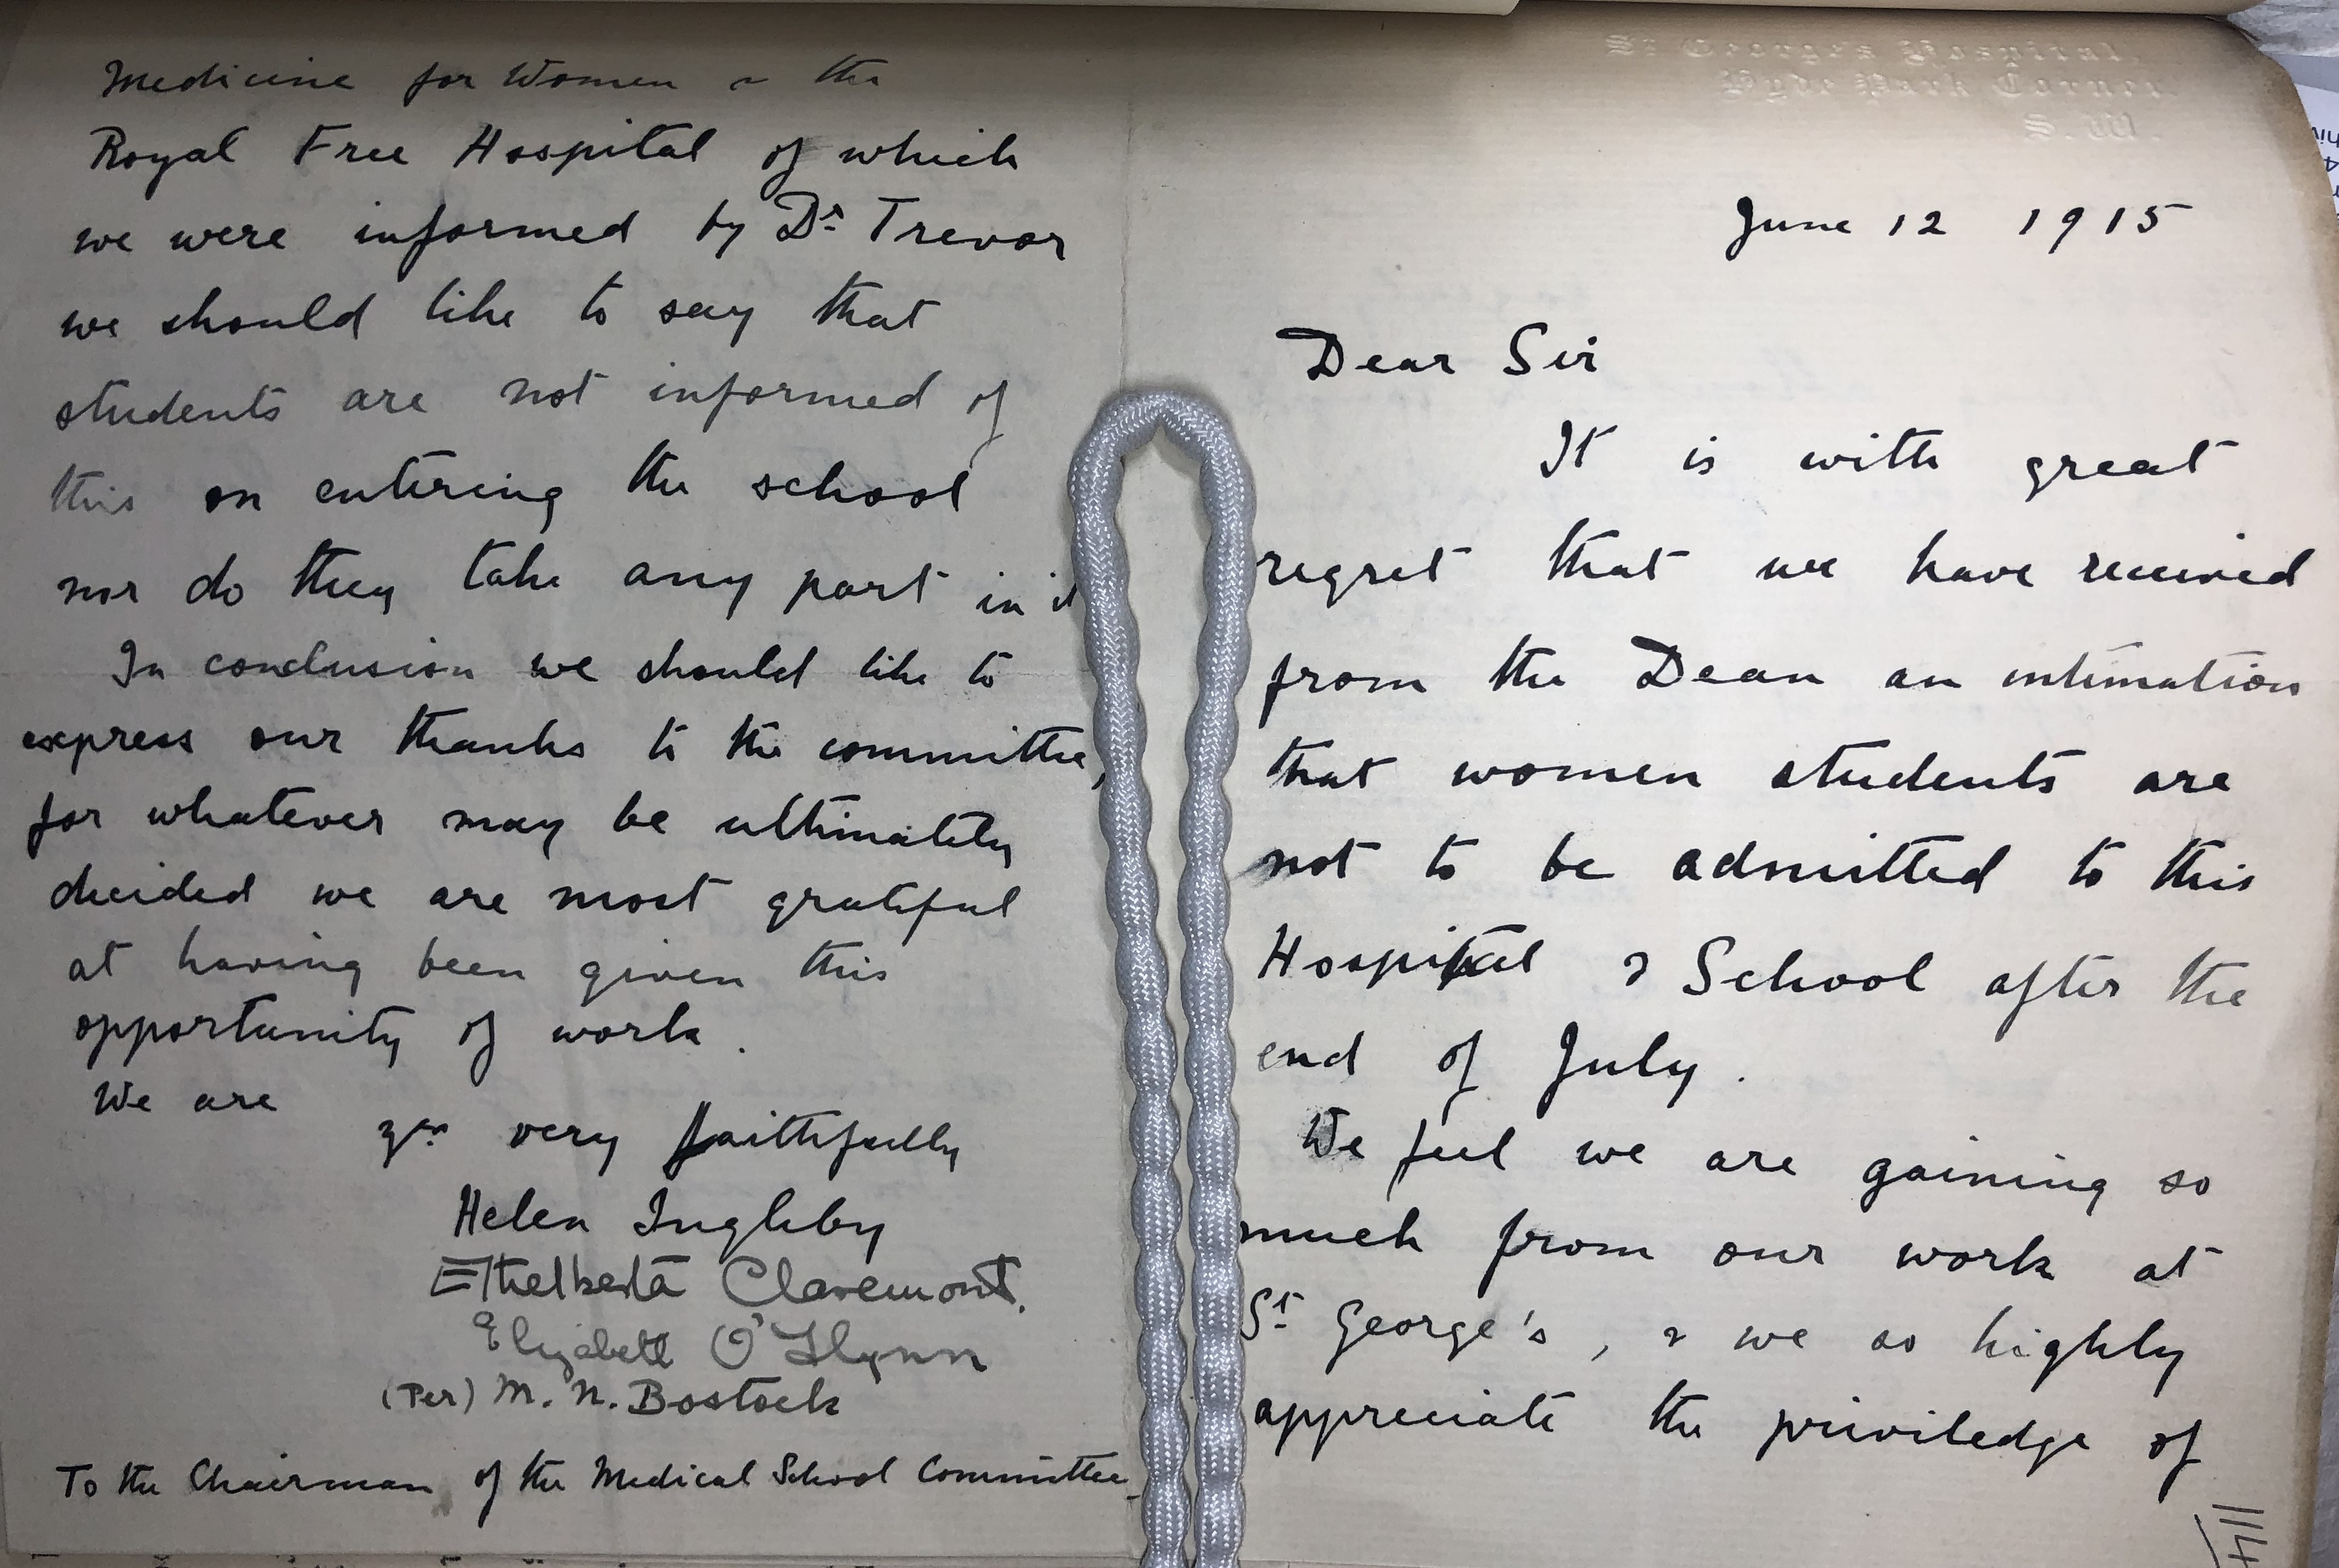 Medicine for Women & the
Royal Free Hospital of which
we were informed by Dr Trevor
we should like to say that
students are not informed of
this on entering the school
nor do they take any part in it
In conclusion we should like to
express our thanks to the committee,
for whatever may be ultimately
decided we are most grateful
at having been given this
opportunity of work.
We are
yrs very faithfully
Helen Ingleby
Ethelberta Claremont.
Elizabeth O'Flynn
(Per) M. N. Bostock
To the Chairman of the Medical School Committee
St George's Hospital,
Hyde Park Corner
S. W.
June 12 1915
Dear Sir
It is with great
regret that we have received
from the Dean an intimation
that women students are
not to be admitted to this
Hospital & School after the
end of July.
We feel we are gaining so
much from our work at
St George's, & we so highly
appreciate the priviledge of
114